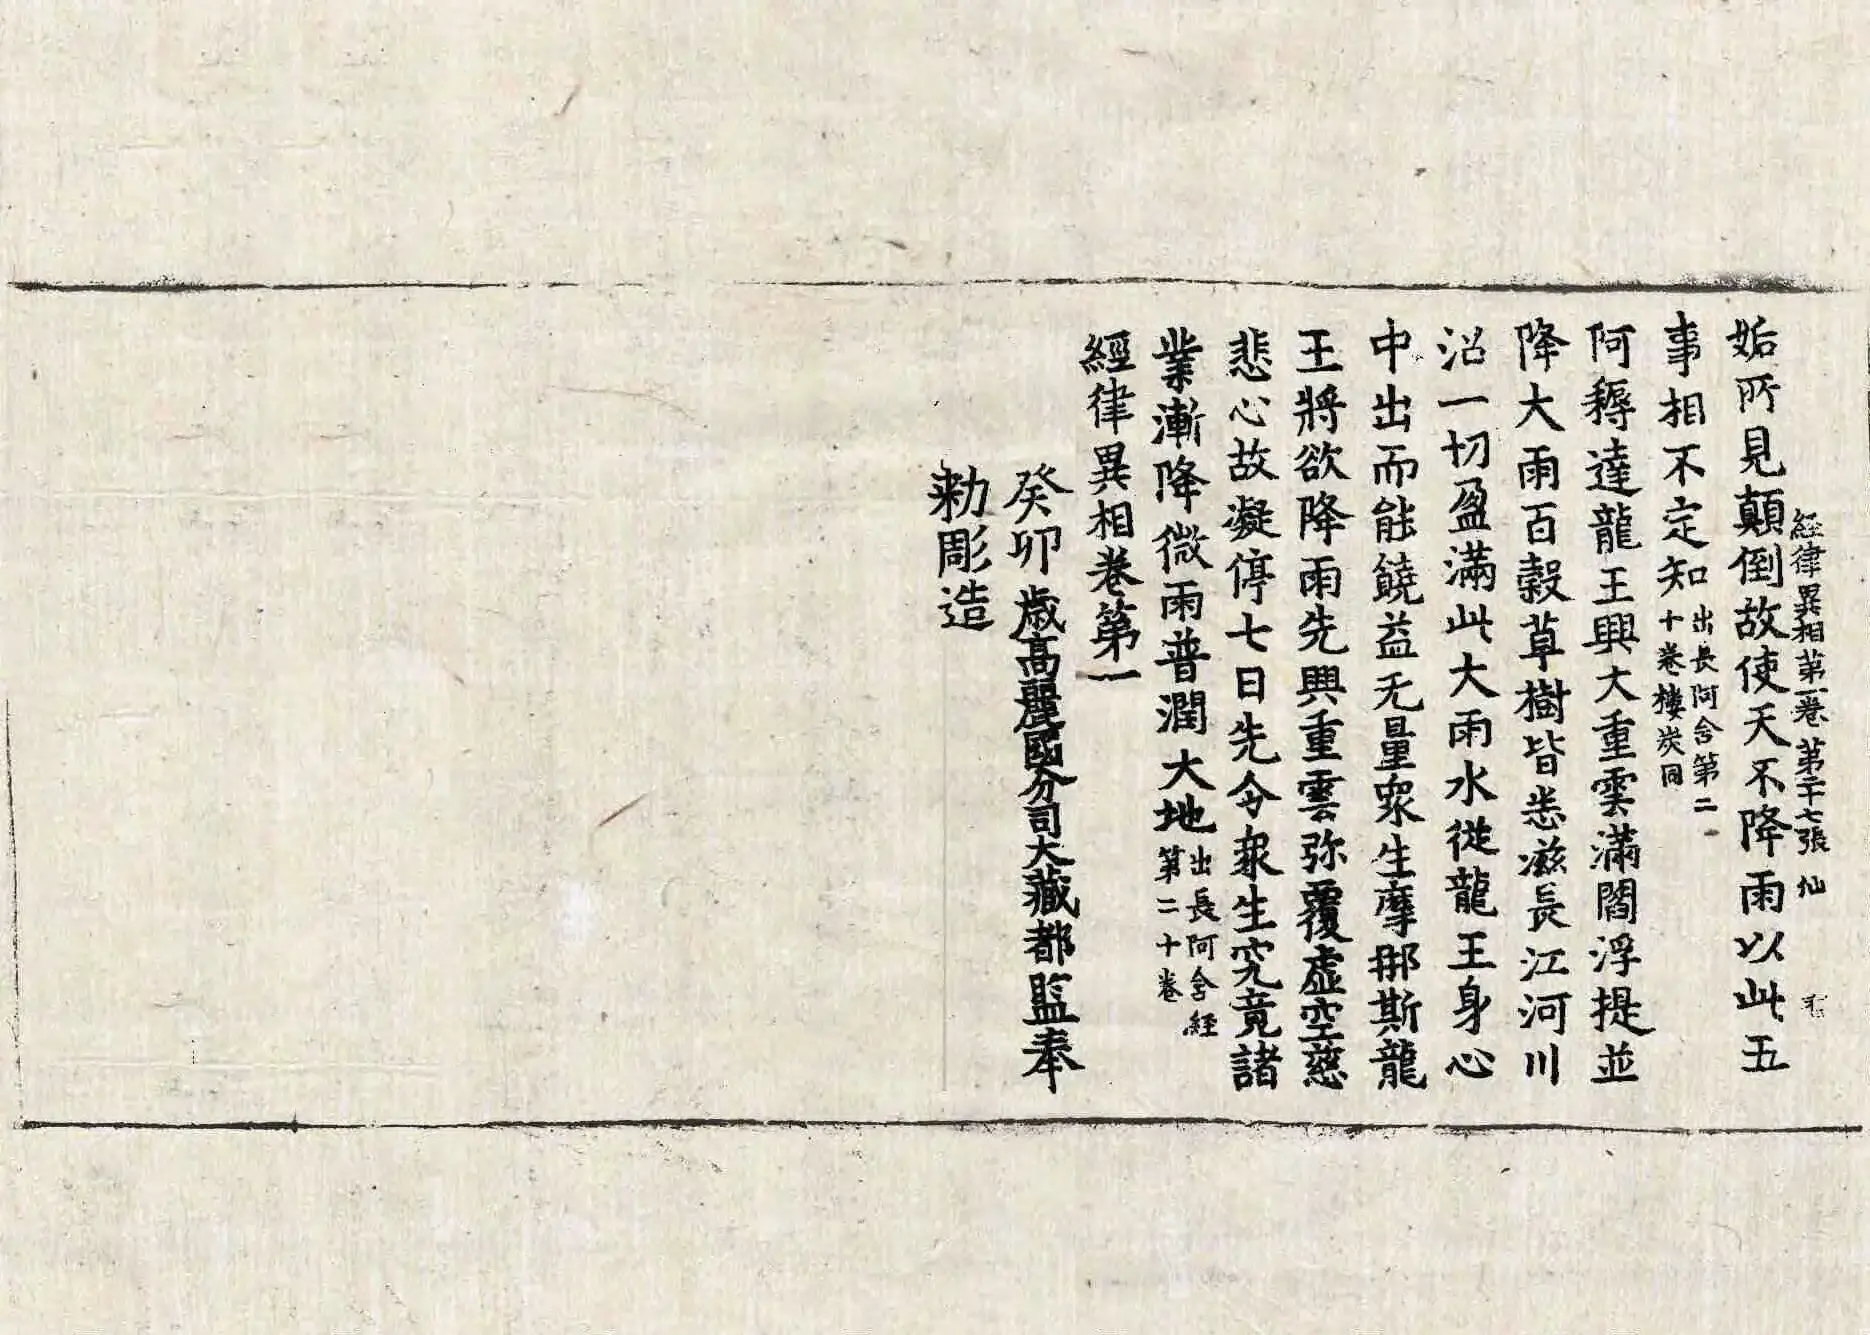 經律異相第一卷 第二十七張 仙
妬所見顛倒故使天不降雨以此五
事相不定知出長阿含第二十卷樓炭同
阿耨達龍王興大重雲滿閻浮提並
降大雨百穀草樹皆悉滋長江河川
沼一切盈滿此大雨水從龍王身心
中出而能饒益无量衆生摩那斯龍
王將欲降雨先興重雲弥覆虛空慈
悲心故凝停七日先令衆生究竟諸
業漸降微雨普潤大地出長阿含經第二十卷
經律異相卷第一
癸卯歲高麗國分司大藏都監奉
勅彫造